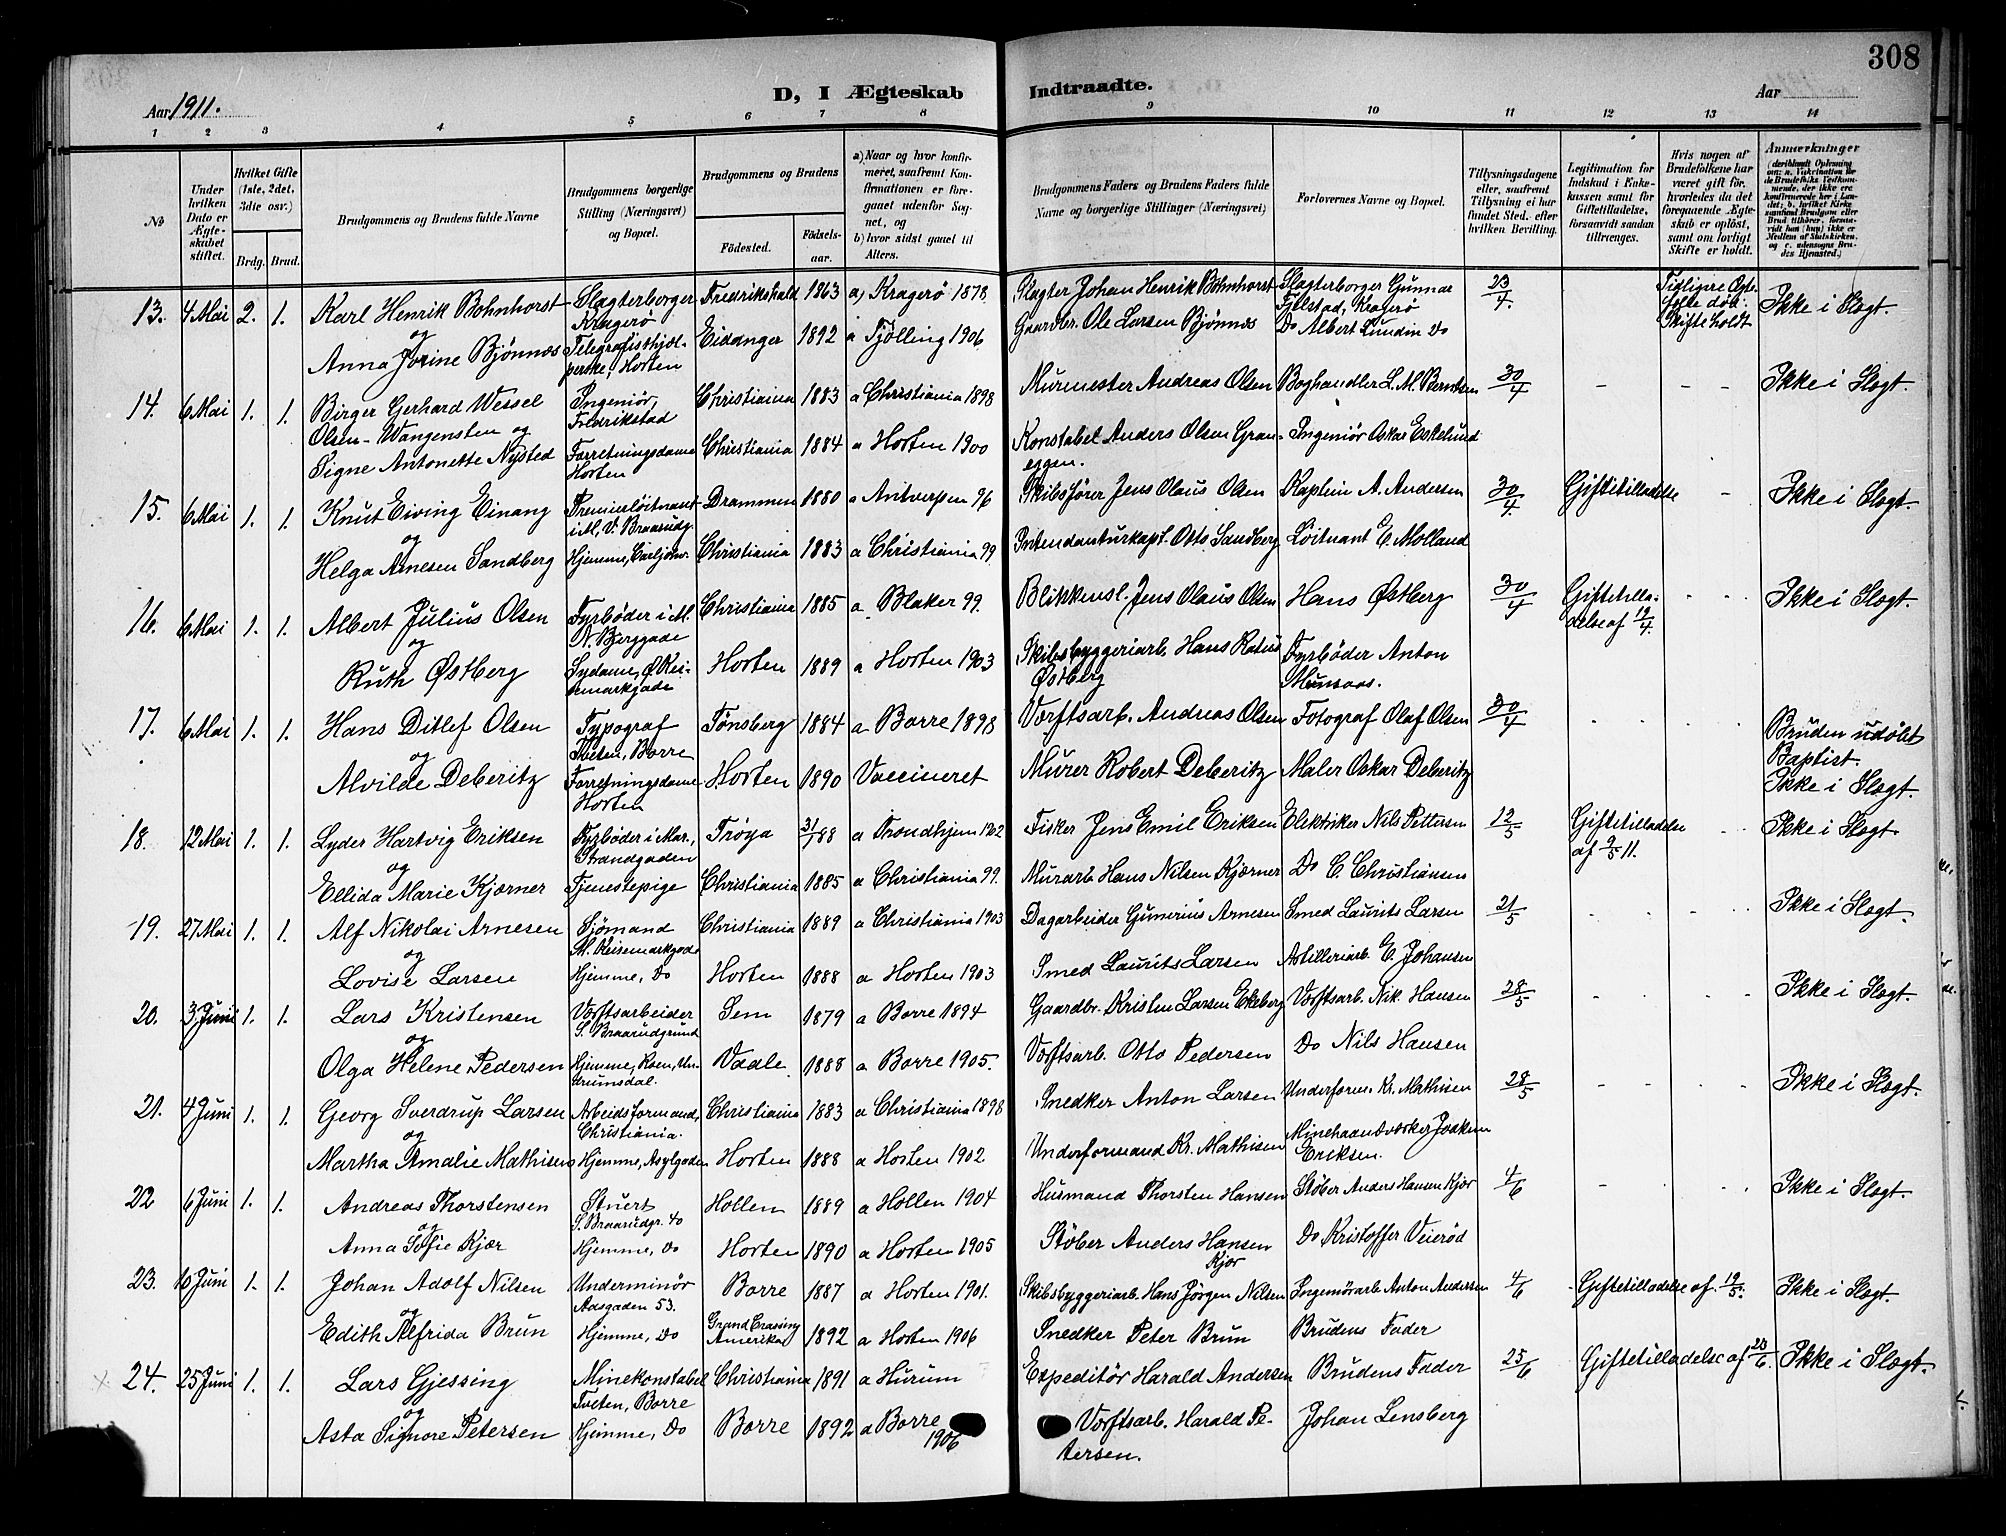 308
Aar 1911.
D, I Ægteskab
Indtraadte.
Aar
1 2 3 4 5 6 7 8 9 10 11 12 13 14
No
Under hvilken Dato er Ægteskabet stiftet.
Hvilket Gifte (1ste, 2det, 3die osv.)
Brdg. Brud.
Brudgommens og Brudens fulde Navne
Brudgommens borgerlige Stilling (Næringsvei) og Bopæl.
Brudgommens og Brudens
Fødested.
Fødselsaar.
a) Naar og hvor konfirmeret, saafremt Konfirmationen er foregaaet udenfor Sognet, og
b) hvor sidst gaaet til Alters.
Brudgommens Faders og Brudens Faders fulde Navne og borgerlige Stillinger (Næringsvei)
Forlovernes Navne og Bopæl.
Tillysningsdagene eller, saafremt Tillysning ei har fundet Sted, efter hvilken Bevilling.
Legitimation for Indskud i Enkekassen samt for Giftetilladelse, forsaavidt saadan tiltrænges.
Hvis nogen af Brudefolkene har været gift før, hvorledes da det foregaaende Ægteskab er opløst, samt om lovligt Skifte er holdt.
Anmærkninger
13. 4 Mai 2. 1. Karl Henrik Bohnhorst Slagterborger Kragerø Fredrikshald 1863 a) Kragerö 1878 Slagter Johan Henrik Bohnhorst Slagterborger Gunnar Fjelstad, Kragerø 23/4. Skifte holdt Ikke i Slægt.
og
Anna Jorine Bjønnes Telegrafisthjælperske, Horten Eidanger 1892 a Tjölling 1906 Gaardbr. Ole Larsen Bjønnes Do Albert Lundin Do
14. 6 Mai 1. 1. Birger Gerhard Wessel Olsen-Wangensten og Ingeniör, Fredrikstad Christiania 1883 a Christiania 1898 Murmester Andreas Olsen Boghandler L. M. Berntsen 30/4 - - - Ikke i Slægt.
Signe Antonette Nysted Forretningsdame Horten Christiania 1884 a Horten 1900 Konstabel Anders Olsen Graneggen. Ingeniör Oskar Eskelund
15. 6 Mai 1. 1. Knut Eiving Einang Premierløitnant i M, V. Braarudg. Drammen 1880 a Antverpen 96 Skibsfører Jens Olaus Olsen Kaptein A. Andersen 30/4. Giftetilladelse - Ikke i Slægt.
og
Helga Arnesen Sandberg Hjemme, Carljohv. Christiania 1883 a Christiania 99 Intendanturkapt. Otto Sandberg Löitnant E. Molland
16. 6 Mai 1. 1. Albert Julius Olsen Fyrbøder i M. N. Berggade Christiania 1885 a Blaker 99. Blikkensl. Jens Olaus Olsen Hans Østberg 30/4 Giftetilladelse af 19/4. - - Ikke i Slægt.
og
Ruth Østberg Sydame, Ø. Keisemarkgade Horten 1889 a Horten 1903 Skibsbyggeriarb. Hans Ratius Østberg Fyrbøder Anton
17. 6 Mai 1. 1. Hans Ditlef Olsen Typograf Tveten, Borre Tønsberg 1884 a Borre 1898 Værftsarb. Andreas Olsen Fotograf Olaf Olsen 30/4 Bruden udøbt Baptist. Ikke i Slægt.
og
Alvilde Deberitz Forretningsdame Horten Horten 1890 Vaccineret Murer Robert Deberitz Maler Oskar Deberitz
18. 12 Mai 1. 1. Lyder Hartvig Eriksen Fyrbøder i Mar., Strandgaden Frøya 88 a Trondhjem 1902 Fisker Jens Emil Eriksen Elektriker Nils Pettersen 12/5 Giftetilladelse af 9/5 11. Ikke i Slægt.
og
Ellida Marie Kjærner Tjenestepige Christiania 1885 a Christiania 99. Murarb. Hans Nilsen Kjærner Do C. Christiansen
19. 27 Mai 1. 1. Alf Nikolai Arnesen Sjømand Christiania 1889 a Christiania 1903 Dagarbeider Gunerius Arnesen Smed Laurits Larsen 21/5 Ikke i Slægt.
og
Lovise Larsen Hjemme, Do Horten 1888 a Horten 1903 Smed Laurits Larsen Artilleriarb. E. Johansen
20. 3 Juni 1. 1. Lars Kristensen Værftsarbeider S. Braarudgrund Sem 1879 a Borre 1894 Gaardbr. Kristen Larsen Ekeberg Værftsarb. Nik. Hansen 28/5 Ikke i Slægt.
og
Olga Helene Pedersen Hjemme, Roen, Undrumsdal. Vaale 1888 a Borre 1905. Værftsarb. Otto Pedersen Do Nils Hansen
21. 4 Juni 1. 1. Georg Sverdrup Larsen Arbeidsformand, Christiania. Christiania 1883 a Christiania 1898 Snedker Anton Larsen Underform. Kr. Mathisen 28/5 Ikke i Slægt.
og
Martha Amalie Mathisen Hjemme, Asylgaden Horten 1888 a Horten 1902 Underformand Kr. Mathisen Minehaandværker Joakim Eriksen.
22 6 Juni 1. 1. Andreas Thorstensen Stuert S. Braarudgr. 40 Hollen 1889 a Hollen 1904 Husmand Thorsten Hansen Støber Anders Hansen Kjær 4/6 Ikke i Slægt.
og
Anna Sofie Kjær Hjemme, Do Horten 1890 a Horten 1905 Støber Anders Hansen Kjær Do Kristoffer Veierød
23. 10 Juni 1. 1. Johan Adolf Nilsen Underminör Aasgaden 53. Borre 1887 a Horten 1901. Skibsbyggeriarb. Hans Jörgen Nilsen Ingeniörarb. Anton Andersen 4/6 Giftetilladelse af 19/5. Ikke i Slægt.
og
Edith Alfrida Brun Hjemme, Do Grand Crassing Amerika 1892 a Horten 1906 Snedker Peter Brun Brudens Fader
24. 25 Juni 1. 1. Lars Gjessing Minekonstabel Tveten, Borre Christiania 1891 a Hurum Expeditör Harald Andersen Brudens Fader 25/6 Giftetilladelse af 20/6. Ikke i Slægt.
og
Asta Signore Petersen Hjemme, Do Borre 1892 a Borre 1906 Værftsarb. Harald Petersen. Johan Lensberg